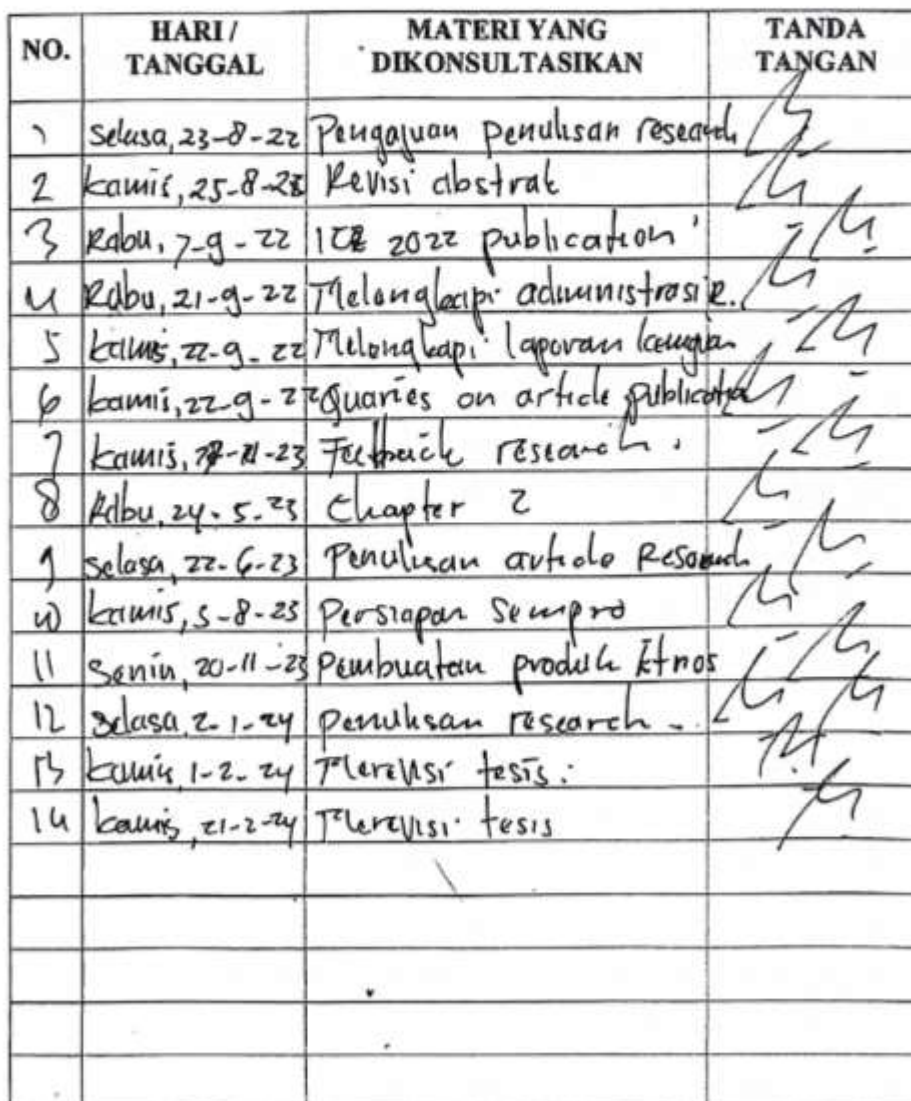 NO. HARI / TANGGAL MATERI YANG DIKONSULTASIKAN TANDA TANGAN
1 Selasa, 23-8-22 Pengajuan penulisan research
2 kamis, 25-8-22 Revisi abstrak
3 Rabu, 7-9-22 2022 publication
4 Rabu, 21-9-22 Melengkapi administrasi
5 kamis, 22-9-22 Melengkapi laporan
6 kamis, 22-9-22 Quaries on article publication
7 kamis, research
8 Rabu, 24-5-23 Chapter 2
9 Selasa, 22-6-23 Penulisan article Research
10 kamis, 3-8-23 Persiapan Sempro
11 Senin, 20-11-23 Pembuatan produk Etnos
12 Selasa, 2-1-24 penulisan research
13 kamis 1-2-24 Merevisi tesis
14 kamis, 21-2-24 Merevisi tesis